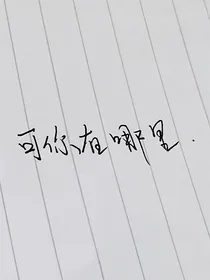 可你在哪里.